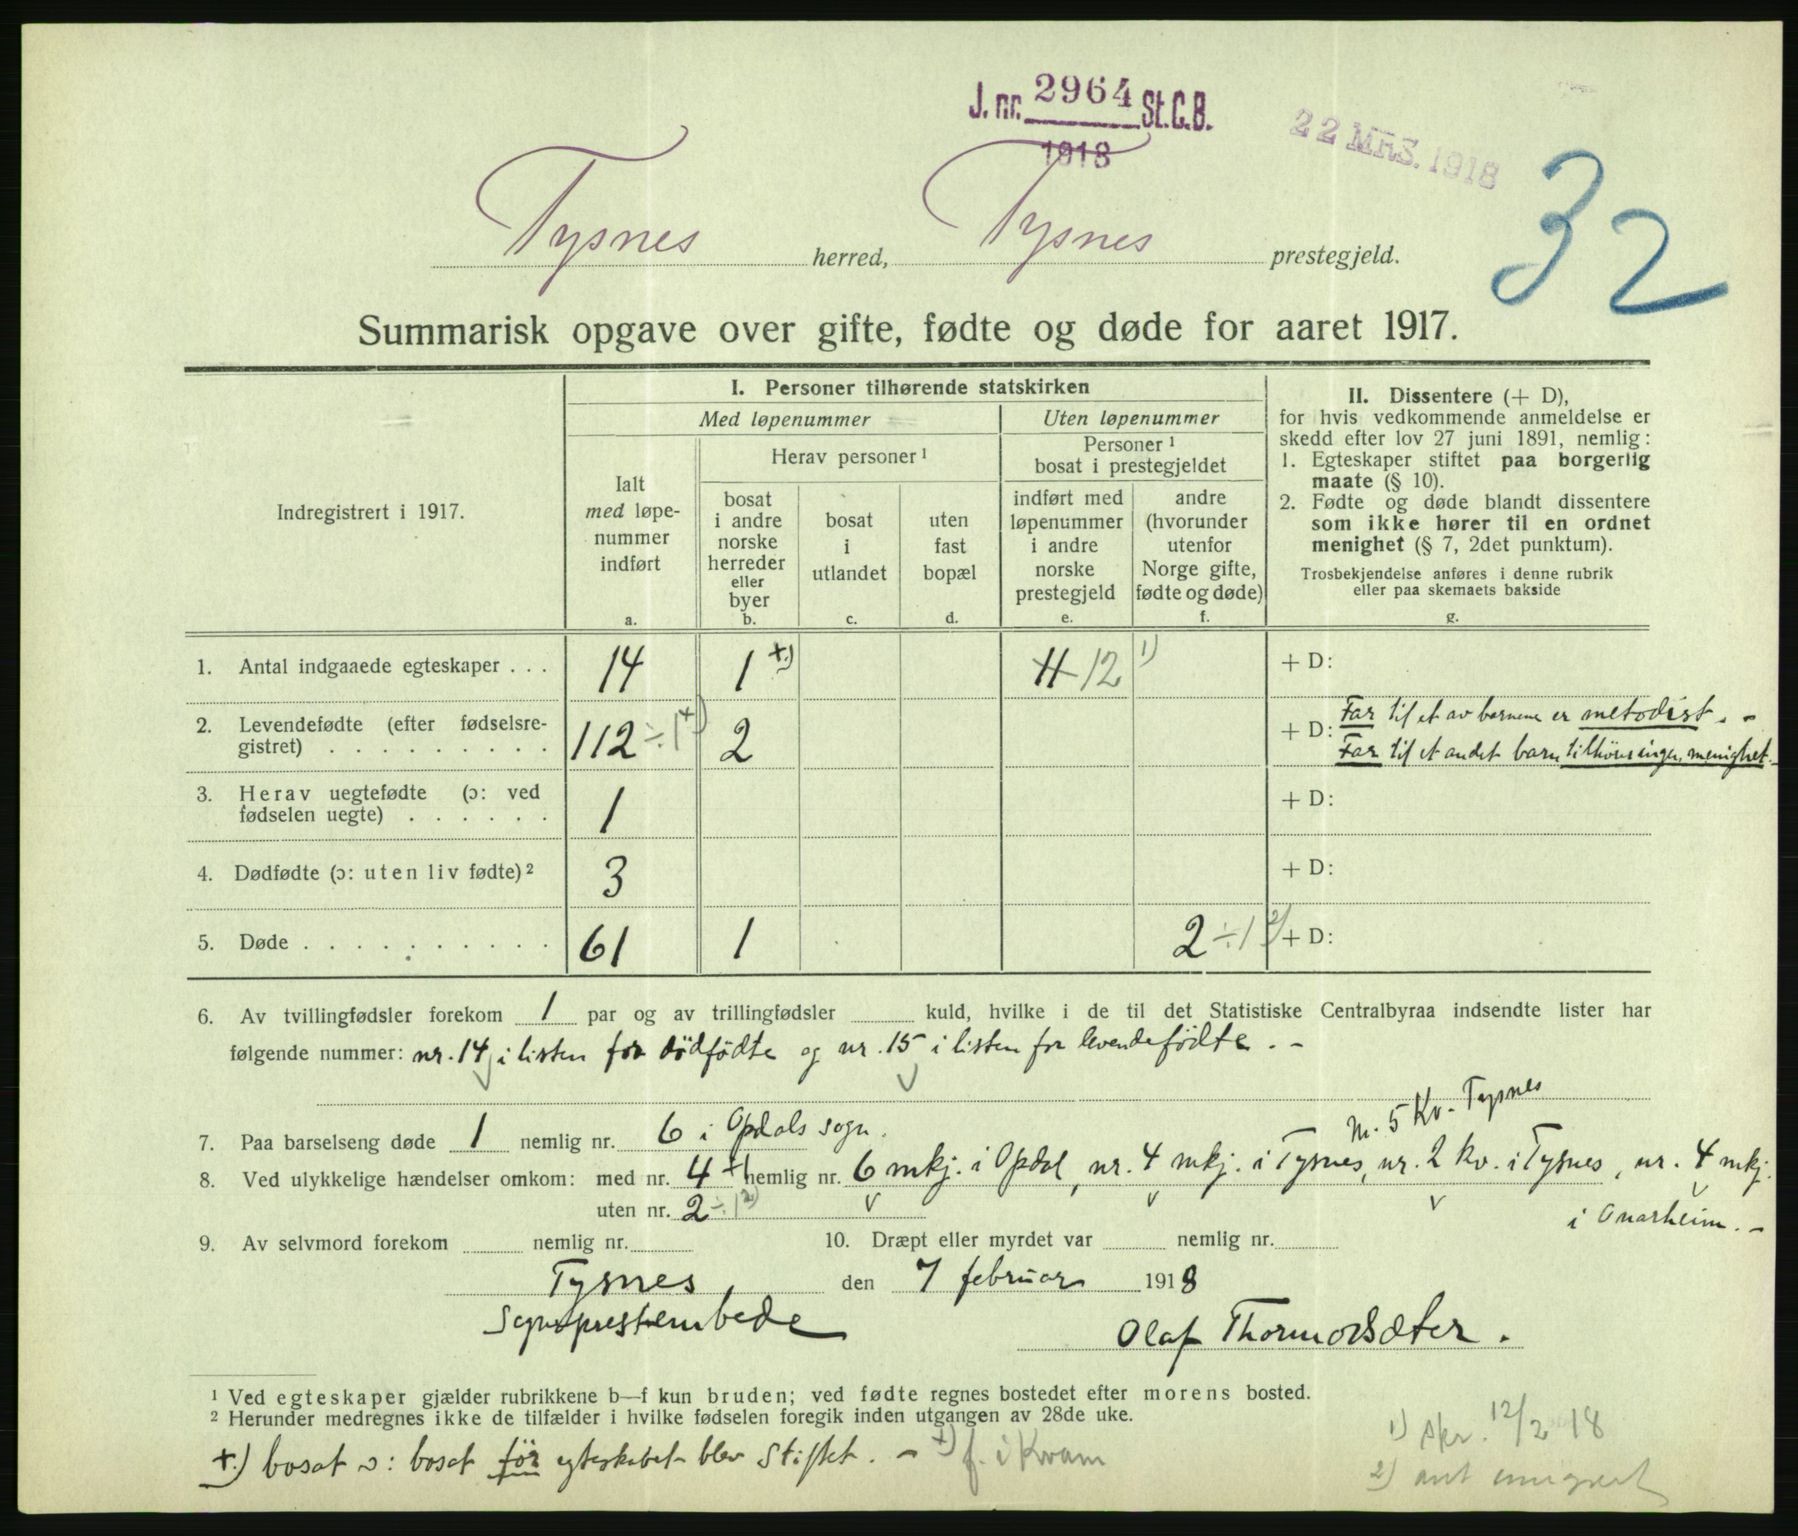 J. nr. 2964 St.C.B.
1918
22 MRS. 1918
32
Tysnes herred, Tysnes prestegjeld.
Summarisk opgave over gifte, fødte og døde for aaret 1917.
Indregistrert i 1917.
I. Personer tilhørende statskirken
Med løpenummer
Uten løpenummer
Ialt
med løpe-
nummer
indført
a.
Herav personer ¹
bosat
i andre
norske
herreder
eller
byer
b.
bosat
i
utlandet
c.
uten
fast
bopæl
d.
Personer ¹
bosat i prestegjeldet
indført med
løpenummer
i andre
norske
prestegjeld
e.
andre
(hvorunder
utenfor
Norge gifte,
fødte og døde)
f.
II. Dissentere (+ D),
for hvis vedkommende anmeldelse er
skedd efter lov 27 juni 1891, nemlig:
1. Egteskaper stiftet paa borgerlig
maate (§ 10).
2. Fødte og døde blandt dissentere
som ikke hører til en ordnet
menighet (§ 7, 2det punktum).
Trosbekjendelse anføres i denne rubrik
eller paa skemaets bakside
g.
1. Antal indgaaede egteskaper . . . 14 1 +) 11 12 1) + D:
2. Levendefødte (efter fødselsre-
gistret) . . . . . . . . . 112 ÷ 1 +) 2 + D: Far til et av barnene er metodist. -
Far til et andet barn tilhører ingen menighet. -
3. Herav uegtefødte (ɔ: ved
fødselen uegte) . . . . . . 1 + D:
4. Dødfødte (ɔ: uten liv fødte) ² 3 + D:
5. Døde . . . . . . . . . . 61 1 2 ÷ 1 2) + D:
6. Av tvillingfødsler forekom 1 par og av trillingfødsler kuld, hvilke i de til det Statistiske Centralbyraa indsendte lister har
følgende nummer: nr. 14 i listen for dödfödte og nr. 15 i listen for levendefödte. -
7. Paa barselseng døde 1 nemlig nr. 6 i Opdals sogn.
m. 5 Kv. Tysnes
8. Ved ulykkelige hændelser omkom: med nr. 4 + 1 nemlig nr. 6 mkj. i Opdal, nr. 4 mkj. i Tysnes, nr. 2 kv. i Tysnes, nr. 4 mkj.
i Onarheim. -
uten nr. 2 ÷ 1 2)
9. Av selvmord forekom nemlig nr. 10. Dræpt eller myrdet var nemlig nr.
Tysnes den 7 februar 1918
Sogneprestembede
Olaf Thormodsæter.
¹ Ved egteskaper gjælder rubrikkene b—f kun bruden; ved fødte regnes bostedet efter morens bosted.
² Herunder medregnes ikke de tilfælder i hvilke fødselen foregik inden utgangen av 28de uke.
+) bosat ɔ: bosat för egteskabet blev stiftet. - +) f. i Kvam
1) skr. 12/2 18
2)